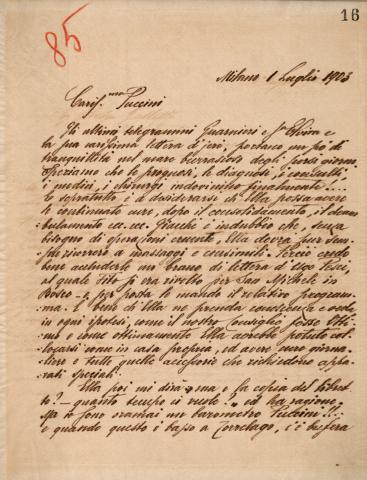 16
85
Milano 1 Luglio 1903
Cariss.mo Puccini
Gli ultimi telegrammi Guarnieri e Sra Elvira e
la sua carissima lettera d'jeri, portano un pò di
tranquillità nel mare burrascoso degli scorsi giorni.
Speriamo che le prognosi, le diagnosi, i consulti,
i medici, i chirurgi indovinino finalmente!....
e sopratutto è a desiderarsi ch'Ella possa avere
le continuate cure, dopo il consolidamento, il deam-
bulamento ecc. ecc. Giacchè è indubbio che, senza
bisogno di operazioni cruente, Ella dovrà pur sem-
pre ricorrere a massaggi e consimili. Perciò credo
bene accluderle un brano di lettera d'Ugo Pesci,
al quale Tito si era rivolto per San Michele in
Bosco - e per posta le mando il relativo program-
ma. È bene di Ella ne prenda conoscenza e vede
in ogni ipotesi, come il nostro consiglio fosse otti-
mo e come ottimamente Ella avrebbe potuto col-
locarsi come in casa propria, ed avere cure giorna-
liere e tutti quelle accessorie che richiedono appa-
rati speciali.
Ella poi mi dirà: ma e la copia del libret-
to? - quanto tempo ci vuole? ed ha ragione.
Ma io sono oramai un barometro Puccini!!..
e quando questo è basso a Torrelago, c'è bufera